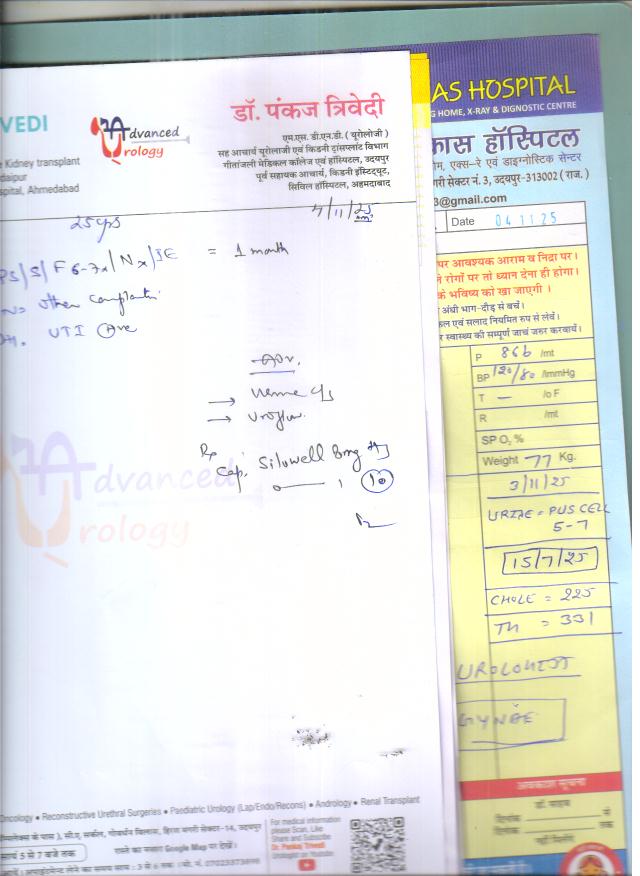 VEDI
Advanced
Urology
डॉ. पंकज त्रिवेदी
एम.एस.डी.एन.बी. ( यूरोलोजी )
सह आचार्य यूरोलोजी एवं किडनी ट्रांसप्लांट विभाग
गीतांजली मेडिकल कॉलेज एवं हॉस्पिटल, उदयपुर
पूर्व सहायक आचार्य, किडनी इंस्टिट्यूट,
सिविल हॉस्पिटल, अहमदाबाद
e Kidney transplant
daipur
spital, Ahmedabad
25 yrs
4/11/25
PS/S/F 6-7x/Nx/SE = 1 month
No other complaints
UTI +ve
Adv.
→ Urine c/s
→ Uroflow
Rx
Cap. Silowell 8mg
1 10
Advanced
Urology
Oncology • Reconstructive Urethral Surgeries • Paediatric Urology (Lap/Endo/Recons) • Andrology • Renal Transplant
सेक्टर-14, उदयपुर
सायं 5 से 7 बजे तक
रास्ते का नक्शा Google Map पर देखें।
For medical information
please Scan, Like
Share and Subscribe
Dr. Pankaj Trivedi
Urologist on Youtube
AS HOSPITAL
G HOME, X-RAY & DIGNOSTIC CENTRE
कास हॉस्पिटल
ोम, एक्स-रे एवं डाइग्नोस्टिक सेन्टर
गरी सेक्टर नं. 3, उदयपुर-313002 ( राज. )
3@gmail.com
Date 04 11 25
पर आवश्यक आराम व निद्रा पर।
रोगों पर तो ध्यान देना ही होगा।
के भविष्य को खा जाएगी ।
अंधी भाग-दौड़ से बचें।
कल एवं सलाद नियमित रुप से लेवें।
र स्वास्थ्य की सम्पूर्ण जाचं जरुर करवायें।
P 86b /mt
BP 120/80 /mmHg
T – /o F
R /mt
SP O2 %
Weight 77 Kg.
3/11/25
URINE = PUS CELL
5-7
15/7/25
CHOLE = 225
TH = 331
UROLOGIST
GYNAE
अवकाश सूचना
डॉ. साहब
दिनांक से
दिनांक तक
नहीं मिलेंगे